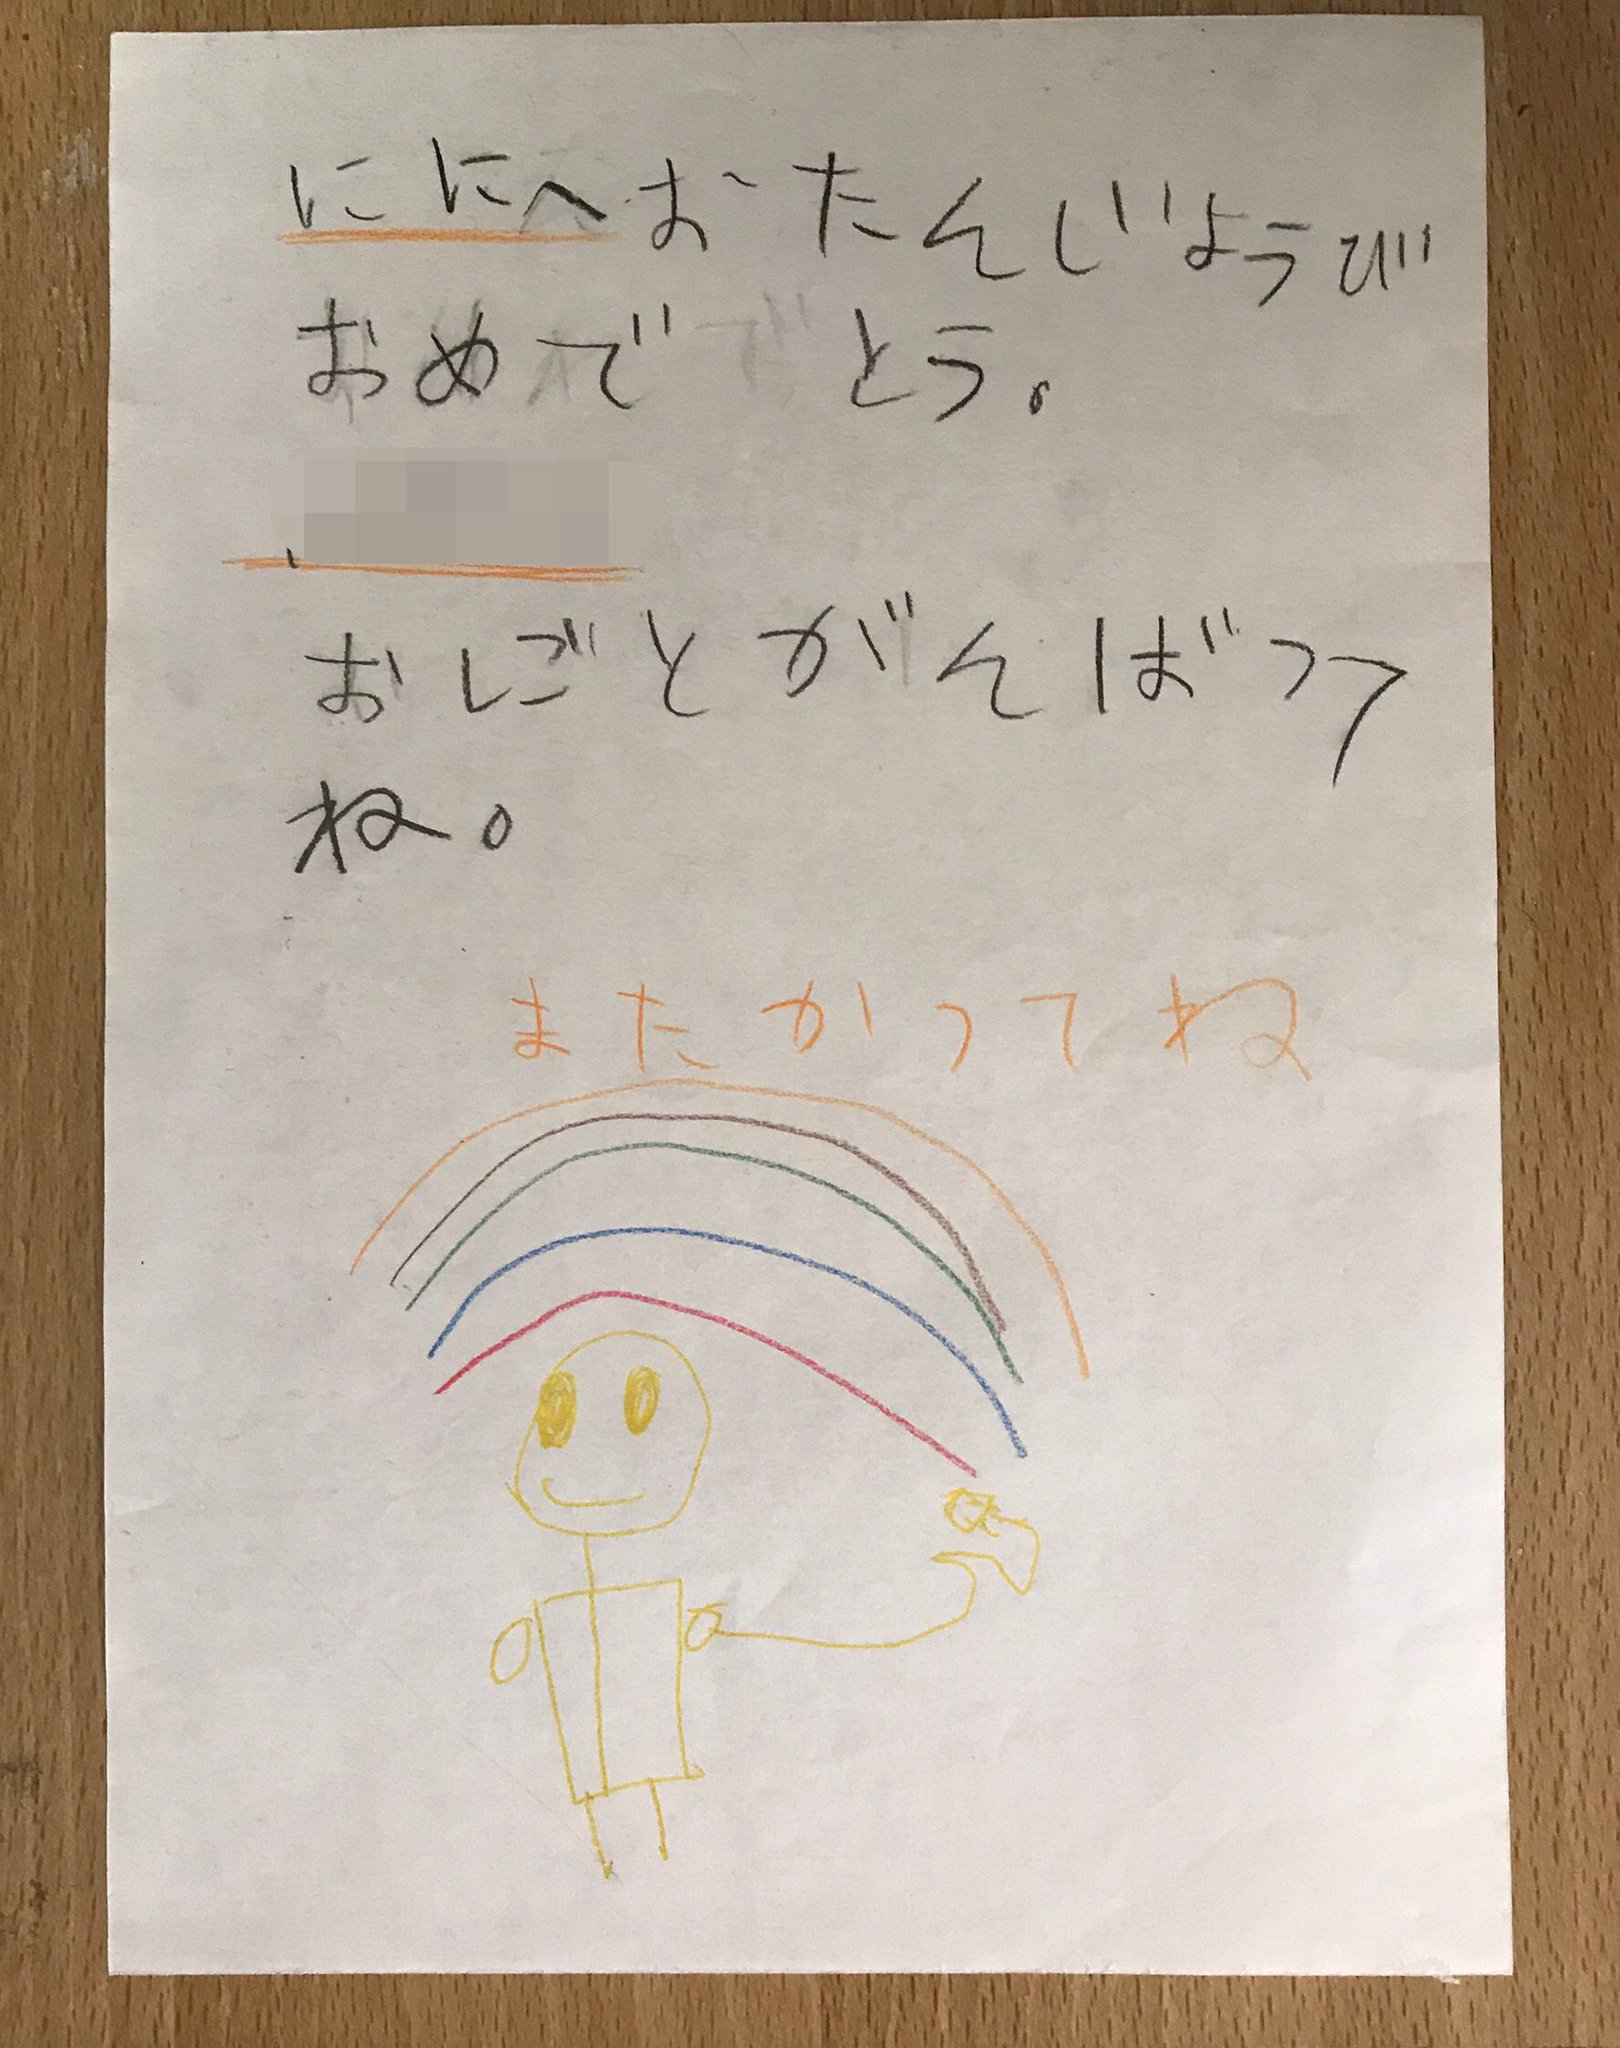 ににへおたんじょうび
おめでとう。
おしごとがんばって
ね。
またかってね